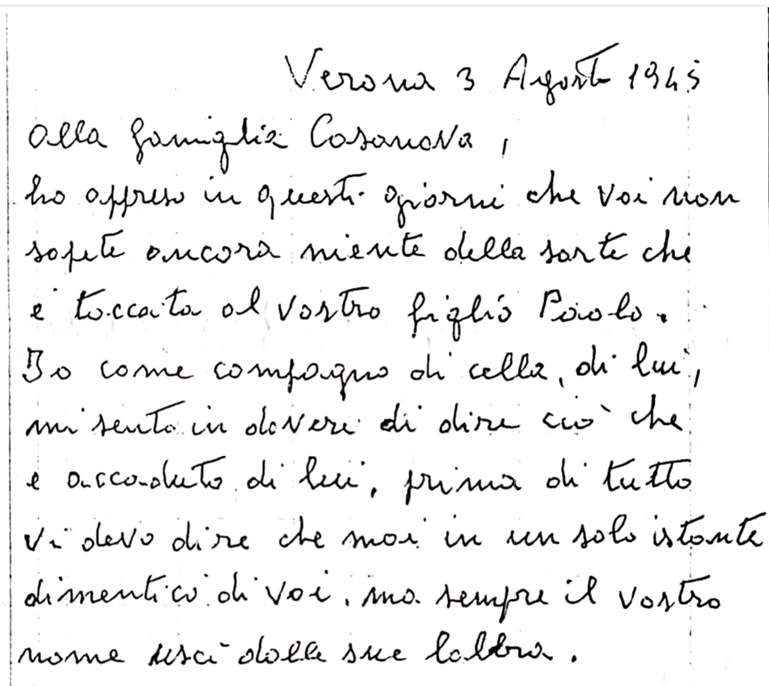 Verona 3 Agosto 1945
alla famiglia Casanova,
ho appreso in questi giorni che voi non
sapete ancora niente della sorte che
e' toccata al vostro figlio Paolo.
Io come compagno di cella, di lui,
mi sento in dovere di dire ciò che
e accaduto di lui, prima di tutto
vi devo dire che mai in un solo istante
dimenticò di voi, ma sempre il vostro
nome uscì dalle sue labbra.